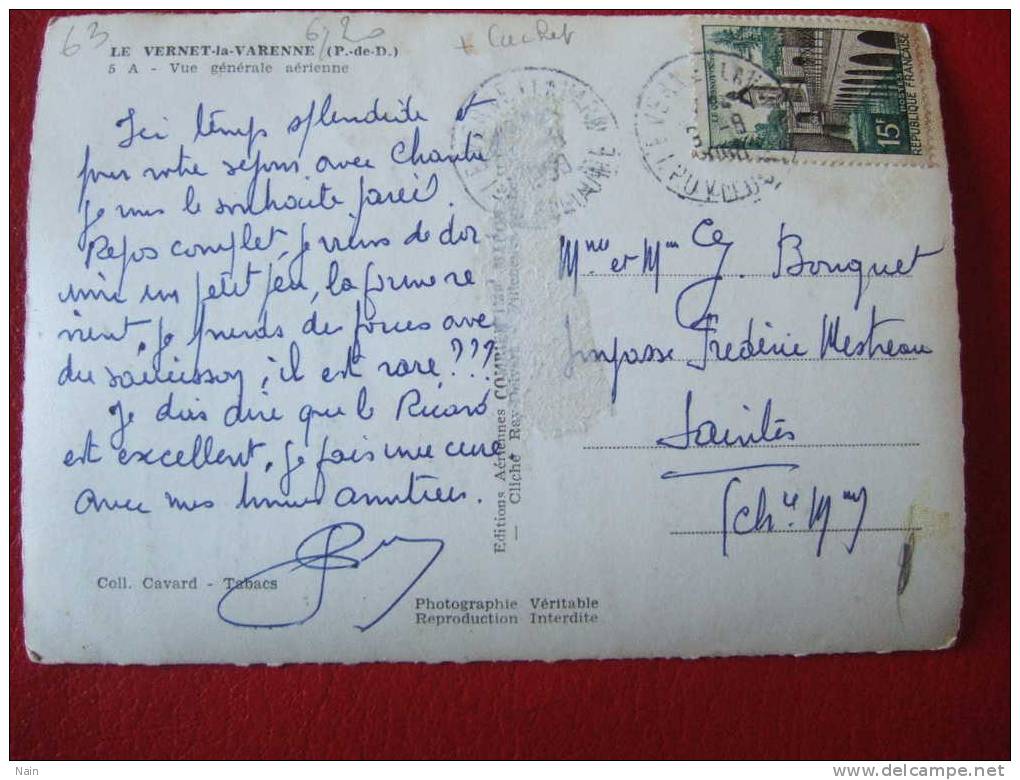 63
6,20
+ Cachet
LE VERNET-la-VARENNE (P.-de-D.)
5 A - Vue générale aérienne
Ici temps splendide et
pour votre séjour avec Chantal
je vous le souhaite pareil.
Repos complet, je viens de dor
mir un petit peu, la forme re
vient, je prends des forces avec
du saucisson, il est rare ???
Je dois dire que le Ricard
est excellent. je fais une cure
avec mes bonnes amitiés.
Coll. Cavard - Tabacs
Editions Aériennes COMBIER
Cliché Ray
Photographie Véritable
Reproduction Interdite
LE VERNET LA VARENNE
PUY DE DOME
15F
POSTES
REPUBLIQUE FRANÇAISE
Mme et Mr G. Bouquet
Impasse Frédéric Mestreau
Saintes
(Ch. te Mme)
www.delcampe.net
Nain